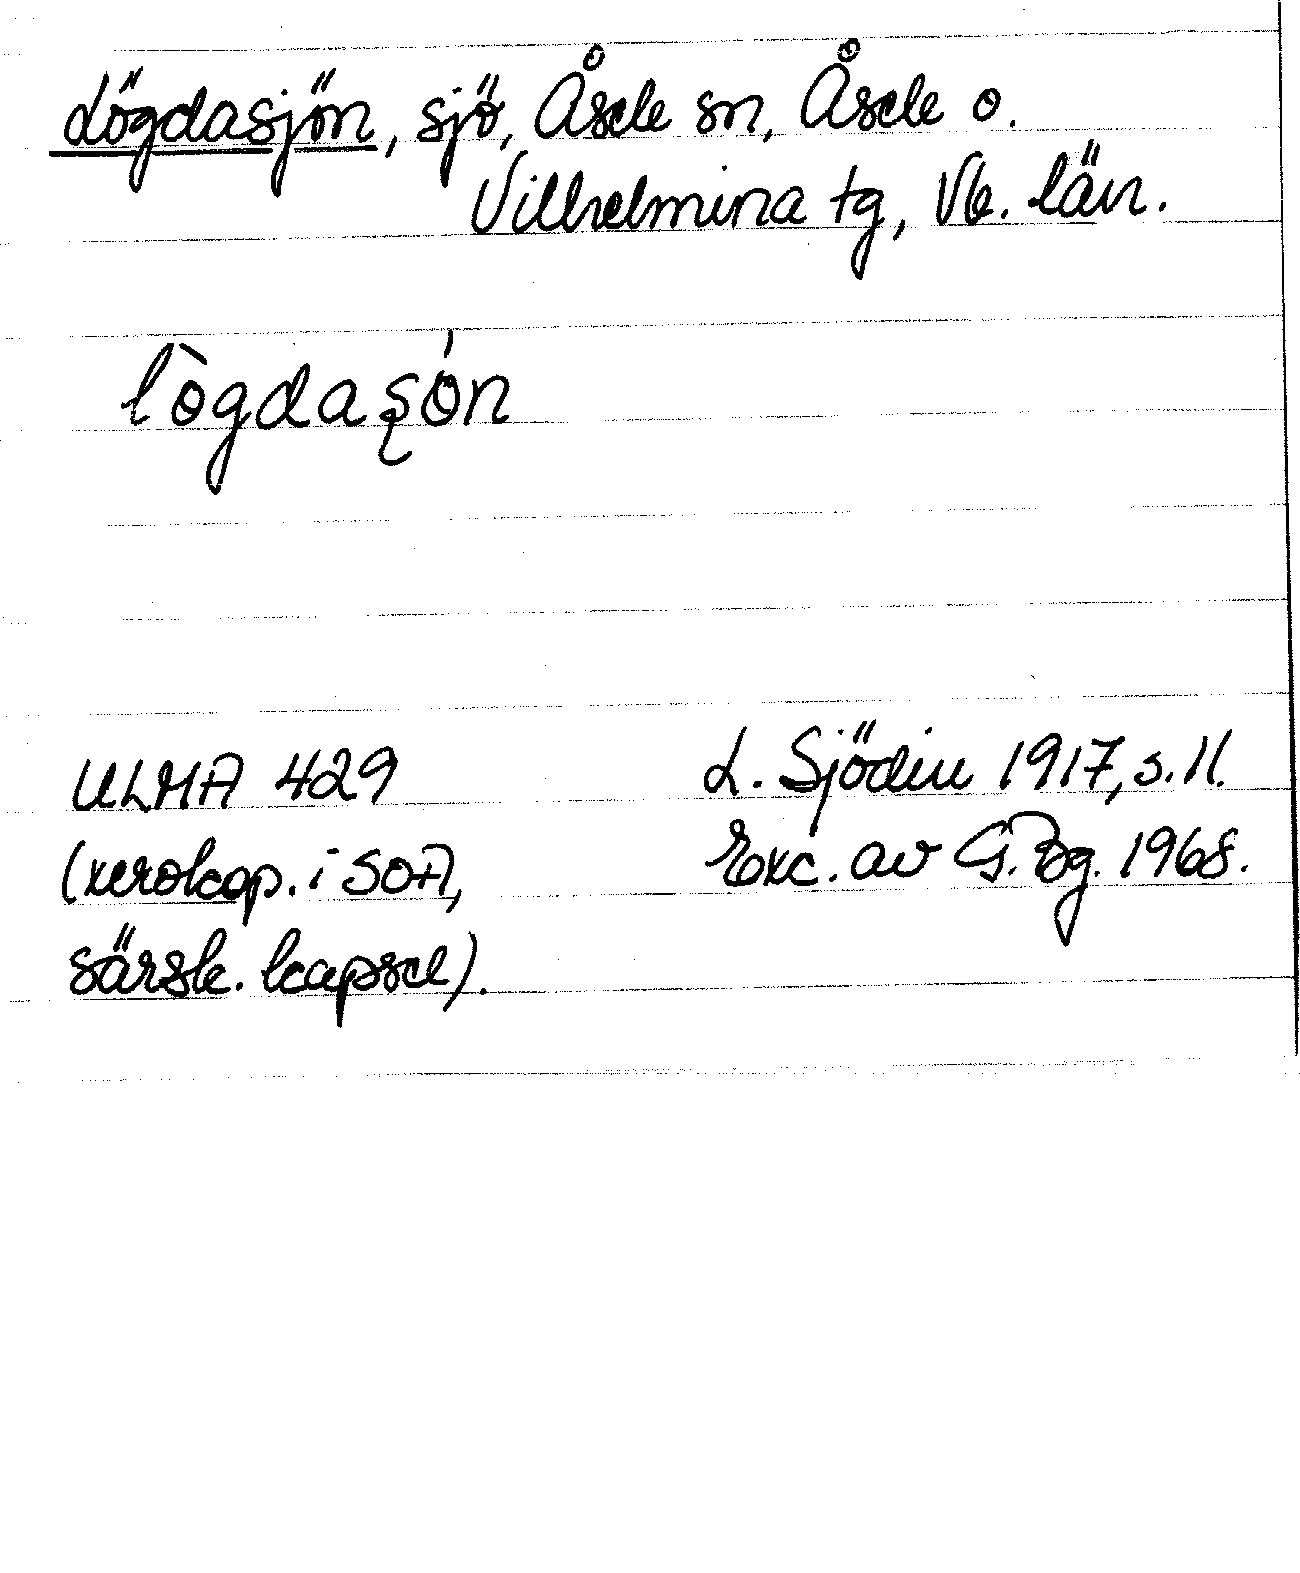 Lögdasjön, sjö, Åsele sn, Åsele o.
Vilhelmina tg, Vb. län.
lògdaʂón
ULMA 429
(xerokop. i SOA,
särsk. kapsel).
L. Sjödin 1917, s. 11.
Exc. av G. Bg. 1968.